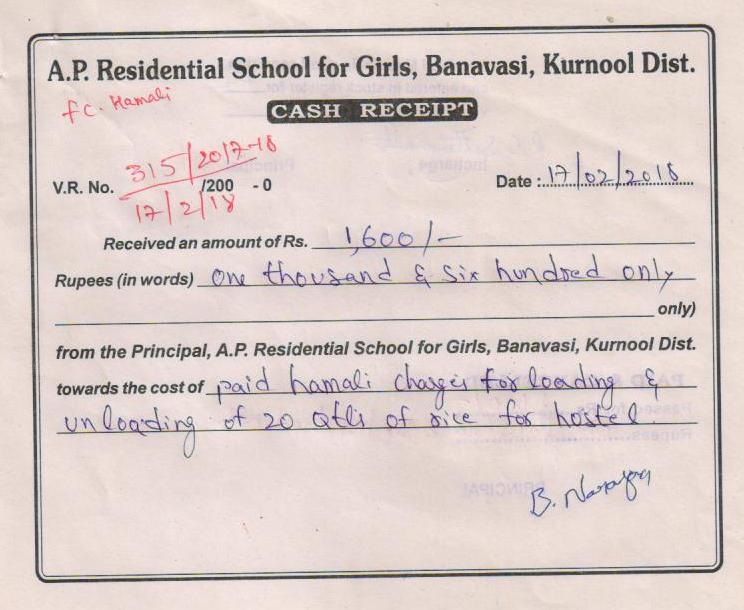 A.P. Residential School for Girls, Banavasi, Kurnool Dist.
fc. Hamali
CASH RECEIPT
315/2017-18
V.R. No. /200 - 0 Date : 17/02/2018
17/2/18
Received an amount of Rs. 1,600/-
Rupees (in words) One thousand & Six hundred only
only)
from the Principal, A.P. Residential School for Girls, Banavasi, Kurnool Dist.
towards the cost of paid hamali charges for loading &
unloading of 20 Qtls of rice for hostel.
B. Narayana
PRINCIPAL